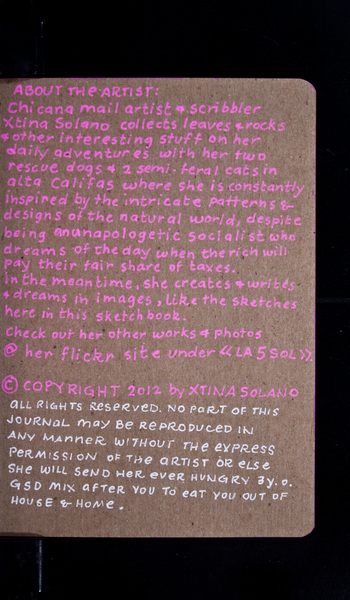 ABOUT THE ARTIST:
Chicana mail artist & scribbler
Xtina Solano collects leaves & rocks
& other interesting stuff on her
daily adventures with her two
rescue dogs & 2 semi-feral cats in
alta Califas where she is constantly
inspired by the intricate patterns &
designs of the natural world, despite
being an unapologetic socialist who
dreams of the day when the rich will
pay their fair share of taxes.
In the meantime, she creates & writes
& dreams in images, like the sketches
here in this sketchbook.
Check out her other works & photos
@ her flickr site under «LA5SOL».
© COPYRIGHT 2012 by XTINA SOLANO
ALL RIGHTS RESERVED. NO PART OF THIS
JOURNAL MAY BE REPRODUCED IN
ANY MANNER WITHOUT THE EXPRESS
PERMISSION OF THE ARTIST OR ELSE
SHE WILL SEND HER EVER HUNGRY 3 y.o.
GSD MIX AFTER YOU TO EAT YOU OUT OF
HOUSE & HOME.